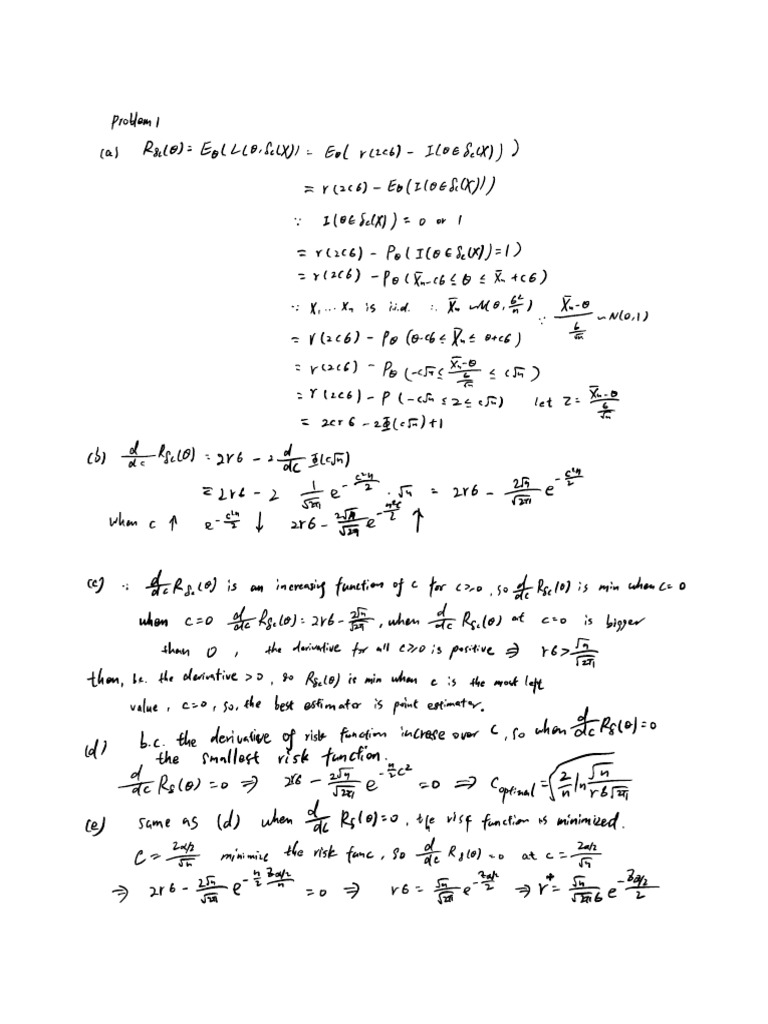 Problem 1
(a) R_{δc}(θ) = E_θ(L(θ, δ_c(X))) = E_θ( r(2c6) - I(θ ∈ δ_c(X)) )
= r(2c6) - E_θ(I(θ ∈ δ_c(X)))
∵ I(θ ∈ δ_c(X)) = 0 or 1
= r(2c6) - P_θ(I(θ ∈ δ_c(X)) = 1)
= r(2c6) - P_θ(X̄_n - c6 ≤ θ ≤ X̄_n + c6)
∵ X_1 ... X_n is i.i.d. ∴ X̄_n ~ N(θ, 6²/n) ∵ (X̄_n - θ)/(6/√n) ~ N(0,1)
= r(2c6) - P_θ(θ - c6 ≤ X̄_n ≤ θ + c6)
= r(2c6) - P_θ(-c√n ≤ (X̄_n - θ)/(6/√n) ≤ c√n)
= r(2c6) - P(-c√n ≤ Z ≤ c√n) let Z = (X̄_n - θ)/(6/√n)
= 2cr6 - 2Φ(c√n) + 1
(b) d/dc R_{δc}(θ) = 2r6 - 2 d/dc Φ(c√n)
= 2r6 - 2 1/√2π e^{-c²n/2} · √n = 2r6 - 2√n/√2π e^{-c²n/2}
when c ↑ e^{-c²n/2} ↓ 2r6 - 2√n/√2π e^{-n²c/2} ↑
(c) ∵ d/dc R_{δc}(θ) is an increasing function of c for c≥0, so d/dc R_{δc}(θ) is min when c = 0
when c=0 d/dc R_{δc}(θ) = 2r6 - 2√n/√2π, when d/dc R_{δc}(θ) at c=0 is bigger
than 0, the derivative for all c≥0 is positive ⇒ r6 > √n/√2π
then, b.c. the derivative >0, so R_{δc}(θ) is min when c is the most left
value, c=0, so, the best estimator is point estimator.
(d) b.c. the derivative of risk function increase over c, so when d/dc R_δ(θ) = 0
the smallest risk function.
d/dc R_δ(θ) = 0 ⇒ 2r6 - 2√n/√2π e^{-n/2 c²} = 0 ⇒ C_{optimal} = √(2/n ln √n/(r6√2π))
(e) same as (d) when d/dc R_δ(θ) = 0, the risk function is minimized.
C = Z_{α/2}/√n minimize the risk func, so d/dc R_δ(θ) = 0 at c = Z_{α/2}/√n
⇒ 2r6 - 2√n/√2π e^{-n/2 Z_{α/2}/n} = 0 ⇒ r6 = √n/√2π e^{-Z_{α/2}/2} ⇒ r* = √n/(√2π 6) e^{-Z_{α/2}/2}